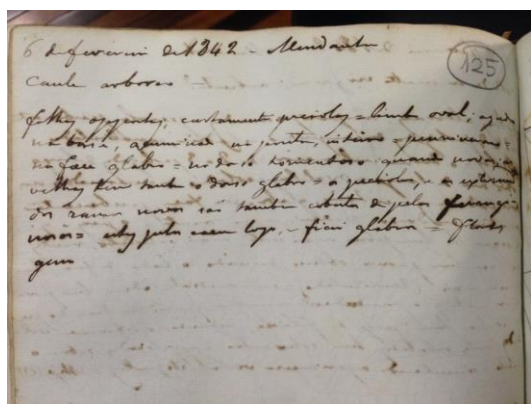 6 de fevereiro de 1842 - Mendanha
125
Caule arboreo
folhas oppostas, curtament pecioladas = limbo oval, aguda
na base, acuminada na ponta, inteiro =
na face glabro = no dorso tomentoso quando
velhas tem tambem o dorso glabro = o peciolo, e as extremi
dos ramos novos são tambem cobertos de pelos ferrugi
nosos = estes pelos caem logo, e ficão glabros = Flores